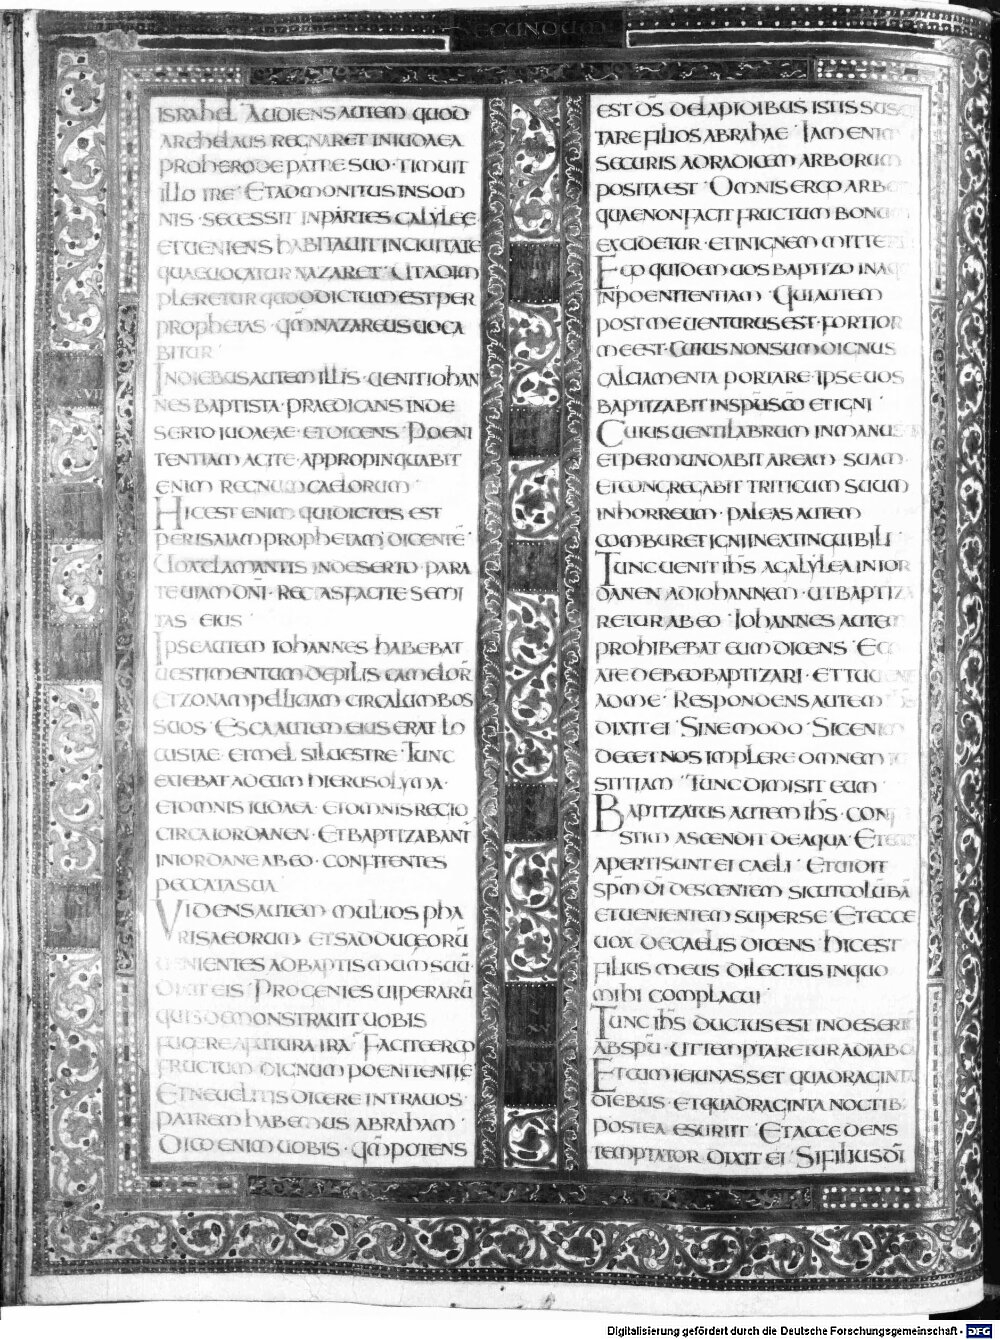 SECUNDUM
ISRAHEL AUDIENS AUTEM QUOD
ARCHELAUS REGNARET IN IUDAEA
PRO HERODE PATRE SUO · TIMUIT
ILLO IRE ET ADMONITUS IN SOM
NIS · SECESSIT IN PARTES GALYLEE ·
ET UENIENS HABITAUIT IN CIUITATE
QUAE UOCATUR NAZARET UT ADIM
PLERETUR QUOD DICTUM EST PER
PROPHETAS · QM̄ NAZAREUS UOCA
BITUR
IN DIEBUS AUTEM ILLIS · UENIT IOHAN
NES BAPTISTA · PRAEDICANS IN DE
SERTO IUDAEAE · ET DICENS POENI
TENTIAM AGITE · APPROPINQUABIT
ENIM REGNUM CAELORUM
HIC EST ENIM QUI DICTUS EST
PER ISAIAM PROPHETAM DICENTĒ
UOX CLAMANTIS IN DESERTO · PARA
TE UIAM DN̄I · RECTAS FACITE SEMI
TAS EIUS
IPSE AUTEM IOHANNES HABEBAT
UESTIMENTUM DE PILIS CAMELOR̄
ET ZONAM PELLICIAM CIRCA LUMBOS
SUOS · ESCA AUTEM EIUS ERAT LO
CUSTAE · ET MEL SILUESTRE TUNC
EXIEBAT AD EUM HIERUSOLYMA ·
ET OMNIS IUDAEA · ET OMNIS REGIO
CIRCA IORDANEN · ET BAPTIZABANT̄
IN IORDANE AB EO · CONFITENTES
PECCATA SUA
VIDENS AUTEM MULTOS PHA
RISAEORUM · ET SADDUCEORŪ
UENIENTES AD BAPTISMUM SUŪ ·
DIXIT EIS PROGENIES UIPERARŪ
QUIS DEMONSTRAUIT UOBIS
FUGERE A FUTURA IRA FACITE ERGO
FRUCTUM DIGNUM POENITENTIE
ET NE UELITIS DICERE INTRA UOS ·
PATREM HABEMUS ABRAHAM
DICO ENIM UOBIS · QM̄ POTENS
EST DS̄ DE LAPIDIBUS ISTIS SUSC
TARE FILIOS ABRAHAE IAM ENIM
SECURIS AD RADICEM ARBORUM
POSITA EST OMNIS ERGO ARBO
QUAE NON FACIT FRUCTUM BONUM
EXCIDETUR · ET IN IGNEM MITTE
EGO QUIDEM UOS BAPTIZO IN AQ
IN POENITENTIAM QUI AUTEM
POST ME UENTURUS EST · FORTIOR
ME EST · CUIUS NON SUM DIGNUS
CALCIAMENTA PORTARE · IPSE UOS
BAPTIZABIT IN SPŪ SCŌ ET IGNI
CUIUS UENTILABRUM IN MANU S
ET PERMUNDABIT AREAM SUAM ·
ET CONGREGABIT TRITICUM SUUM
IN HORREUM · PALEAS AUTEM
COMBURET IGNI INEXTINGUIBILI
TUNC UENIT IHS̄ A GALYLEA IN IOR
DANEN AD IOHANNEM · UT BAPTIZA
RETUR AB EO IOHANNES AUTEM
PROHIBEBAT EUM DICENS EG
A TE DEBEO BAPTIZARI · ET TU UENI
AD ME RESPONDENS AUTEM IHS̄
DIXIT EI SINE MODO SIC ENIM
DECET NOS IMPLERE OMNEM IU
STITIAM TUNC DIMISIT EUM
BAPTIZATUS AUTEM IHS̄ · CONF
STIM ASCENDIT DE AQUA ET ECCE
APERTI SUNT EI CAELI ET UIDIT
SPM̄ DĪ DESCENTEM SICUT COLŪBĀ
ET UENIENTEM SUPER SE ET ECCE
UOX DE CAELIS DICENS HIC EST
FILIUS MEUS DILECTUS IN QUO
MIHI COMPLACUI
TUNC IHS̄ DUCTUS EST IN DESERT
AB SPŪ · UT TEMPTARETUR A DIABO
ET CUM IEIUNASSET QUADRAGINTA
DIEBUS · ET QUADRAGINTA NOCTIB
POSTEA ESURIIT ET ACCEDENS
TEMPTATOR DIXIT EI SI FILIUS DĪ
Digitalisierung gefördert durch die Deutsche Forschungsgemeinschaft - DFG